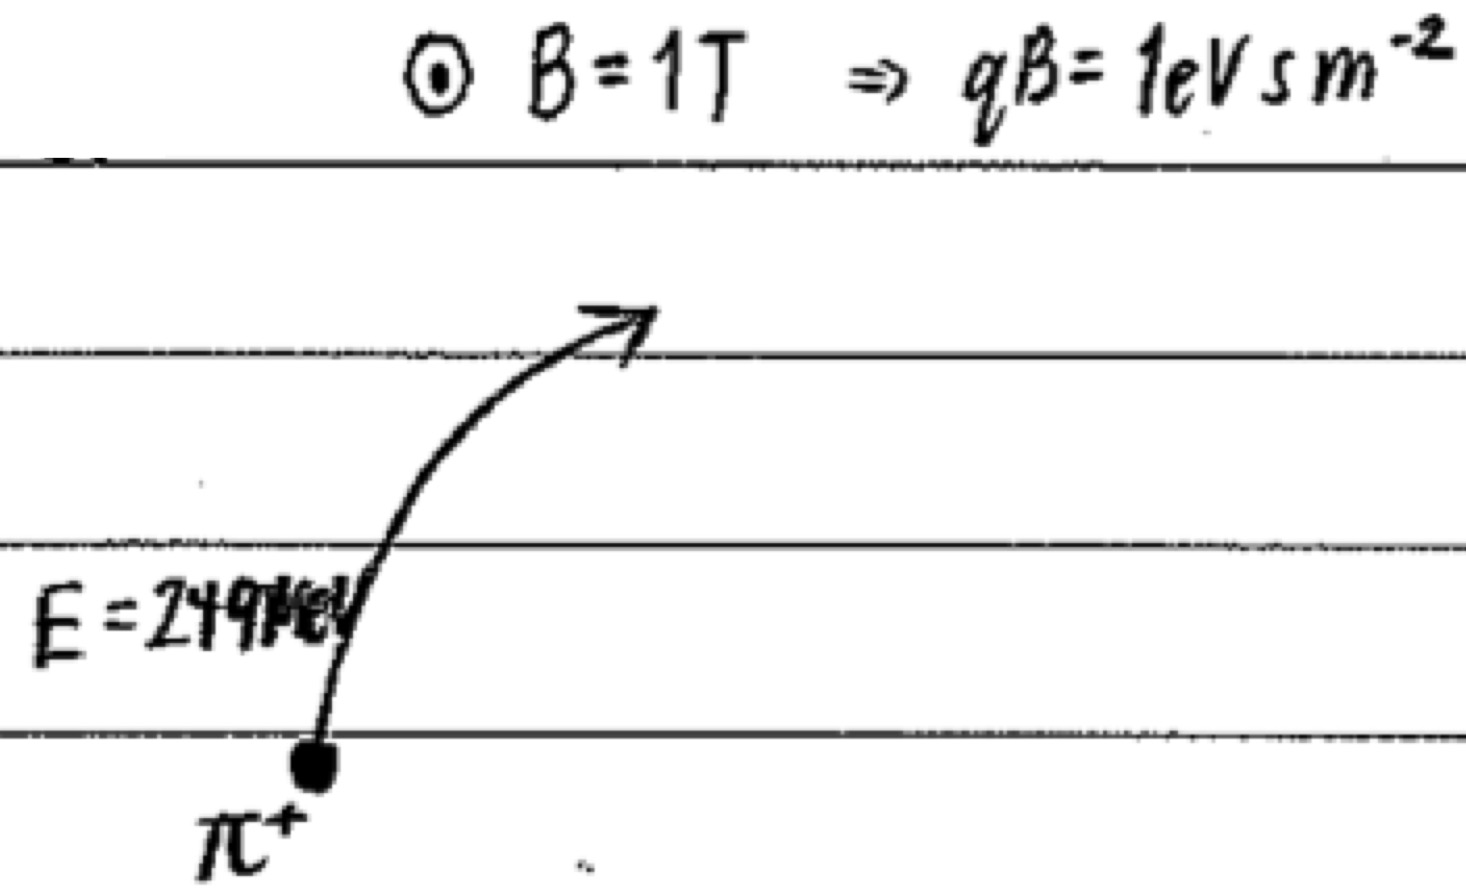 ⊙ B = 1T ⇒ qB = 1eV s m⁻²
E = 249MeV
π⁺